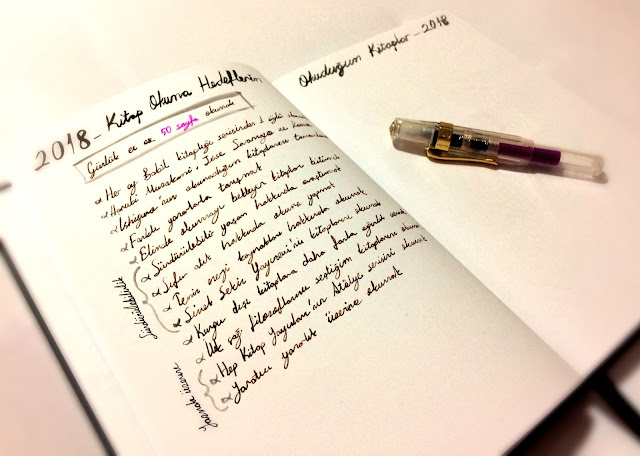 2018_ Kitap Okuma Hedeflerim
Günlük en az 50 sayfa okumak
Her ay Babil kitaplığı serisinden 1 öykü
Haruki Murakami, Jose Saramago ve Kazuo
Ishiguro'nun okumadığım kitaplarını
Farklı yazarlarla tanışmak
Elinde okunmayı bekleyen kitapları bitirmek
Sürdürülebilir yaşam hakkında araştırmak
Sıfır atık hakkında okuma yapmak
Temiz enerji kaynakları hakkında okumak
Sinek Sekiz Yayınevi'nin kitaplarını okumak
Kurgu dışı kitaplara daha fazla ağırlık
İlk çağ filozoflarına seçtiğim kitapların
Hep Kitap Yayınları'nın Atölye serisini okumak
Yaratıcı yazarlık üzerine okumak
Sürdürülebilirlik
Yazmak üzerine
Okuduğum Kitaplar_ 2018